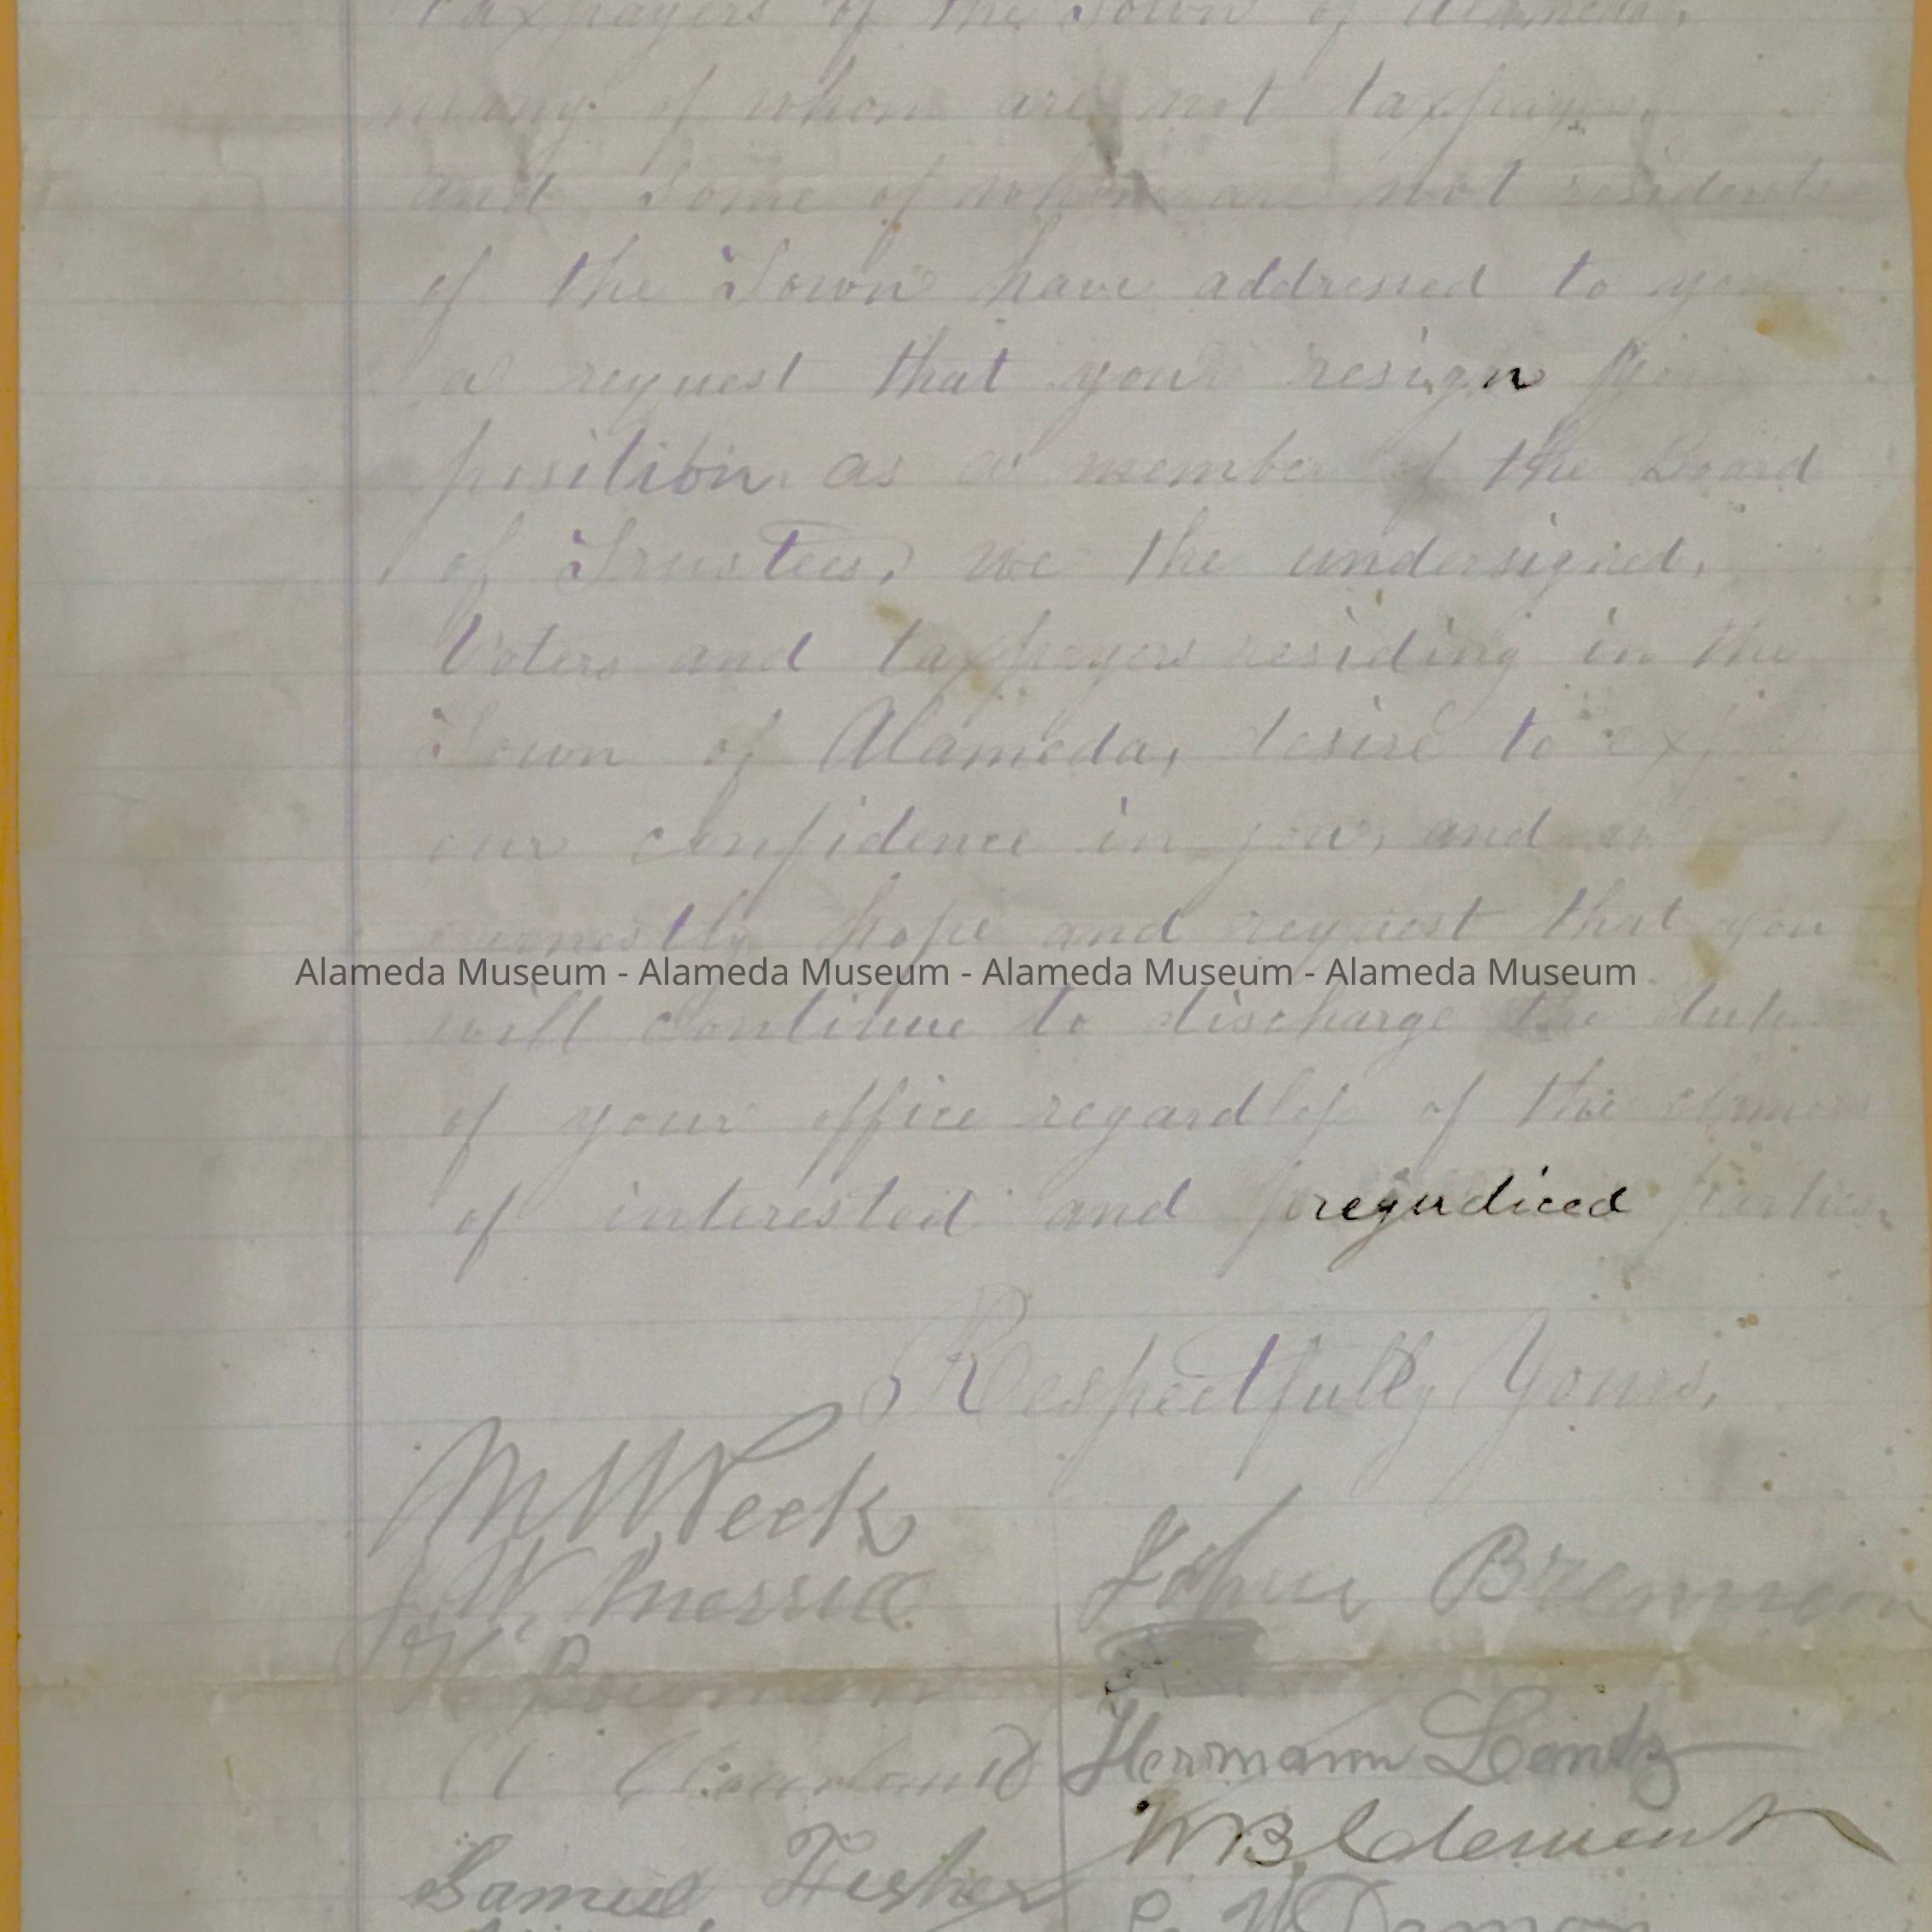 Taxpayers of the Town of Alameda,
many of whom are not taxpayers,
and some of whom are not residents
of the Town have addressed to you
a request that you resign your
position as a member of the Board
of Trustees, we the undersigned,
Voters and taxpayers residing in the
Town of Alameda, desire to
our confidence in you, and
earnestly hope and request that you
Alameda Museum - Alameda Museum - Alameda Museum - Alameda Museum
will continue to discharge the
of your office regardless of the
of interested and prejudiced parties
Respectfully Yours,
Peek
W. Merrill
John Brennen
H Bowman
Hermann Lentz
W B Clement
Samuel Fisher
Damon